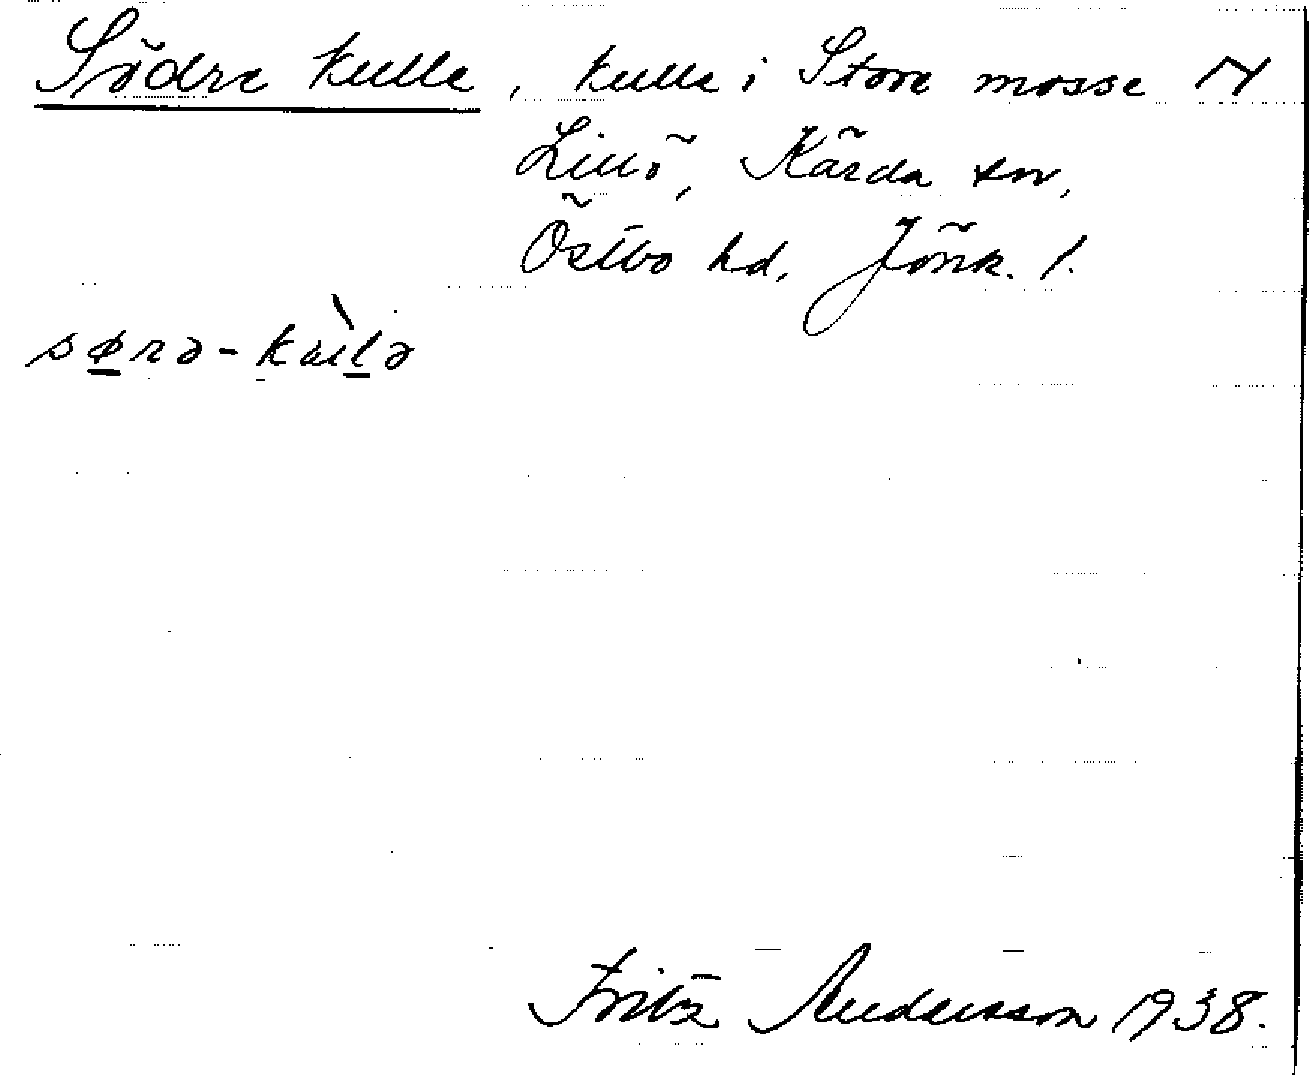 Södra kulle, kulle i Stora mosse N
Linö, Kärda sn,
Östbo hd, Jönk. l.
Fritz Andersson 1938.